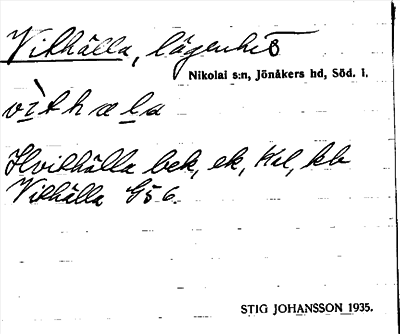 Vithälla, lägenhet
Nikolai s:n, Jönåkers hd, Söd. l.
vìthæla
Hvithälla bek, ek, Kal, kb
Vithälla G56.
STIG JOHANSSON 1935.